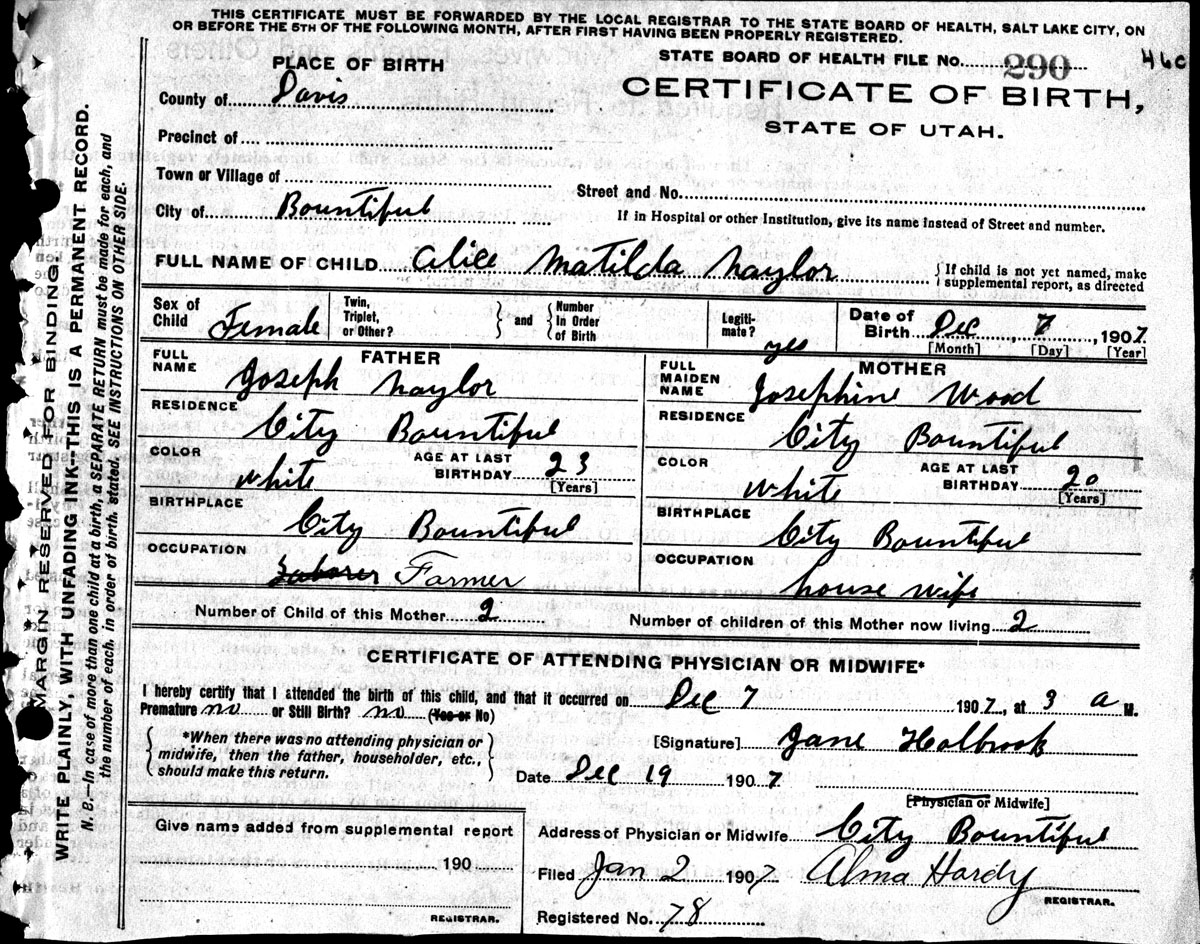 THIS CERTIFICATE MUST BE FORWARDED BY THE LOCAL REGISTRAR TO THE STATE BOARD OF HEALTH, SALT LAKE CITY, ON
OR BEFORE THE 5TH OF THE FOLLOWING MONTH, AFTER FIRST HAVING BEEN PROPERLY REGISTERED.
PLACE OF BIRTH
STATE BOARD OF HEALTH FILE No. 290 46c
County of Davis
CERTIFICATE OF BIRTH,
STATE OF UTAH.
Precinct of
Town or Village of
Street and No.
City of Bountiful
If in Hospital or other Institution, give its name instead of Street and number.
FULL NAME OF CHILD Alice Matilda Naylor { If child is not yet named, make
supplemental report, as directed
Sex of Child Female
Twin, Triplet, or Other? } and { Number In Order of Birth
Legiti- mate? yes
Date of Birth Dec 7, 1907.
[Month] [Day] [Year]
FATHER
FULL NAME Joseph Naylor
RESIDENCE City Bountiful
COLOR white AGE AT LAST BIRTHDAY 23
[Years]
BIRTHPLACE City Bountiful
OCCUPATION Laborer Farmer
MOTHER
FULL MAIDEN NAME Josephine Wood
RESIDENCE City Bountiful
COLOR white AGE AT LAST BIRTHDAY 20
[Years]
BIRTHPLACE City Bountiful
OCCUPATION house wife
Number of Child of this Mother 2 Number of children of this Mother now living 2
CERTIFICATE OF ATTENDING PHYSICIAN OR MIDWIFE*
I hereby certify that I attended the birth of this child, and that it occurred on Dec 7 1907, at 3 a M.
Premature no or Still Birth? no (Yes or No)
{ *When there was no attending physician or
midwife, then the father, householder, etc.,
should make this return. }
[Signature] Jane Holbrook
Date Dec 19 1907
[Physician or Midwife]
Give name added from supplemental report
190
REGISTRAR.
Address of Physician or Midwife City Bountiful
Filed Jan 2 1907 Alma Hardy
REGISTRAR.
Registered No. 78
MARGIN RESERVED FOR BINDING
WRITE PLAINLY WITH UNFADING INK--THIS IS A PERMANENT RECORD.
N. B.—In case of more than one child at a birth, a SEPARATE RETURN must be made for each, and
the number of each, in order of birth, stated. SEE INSTRUCTIONS ON OTHER SIDE.